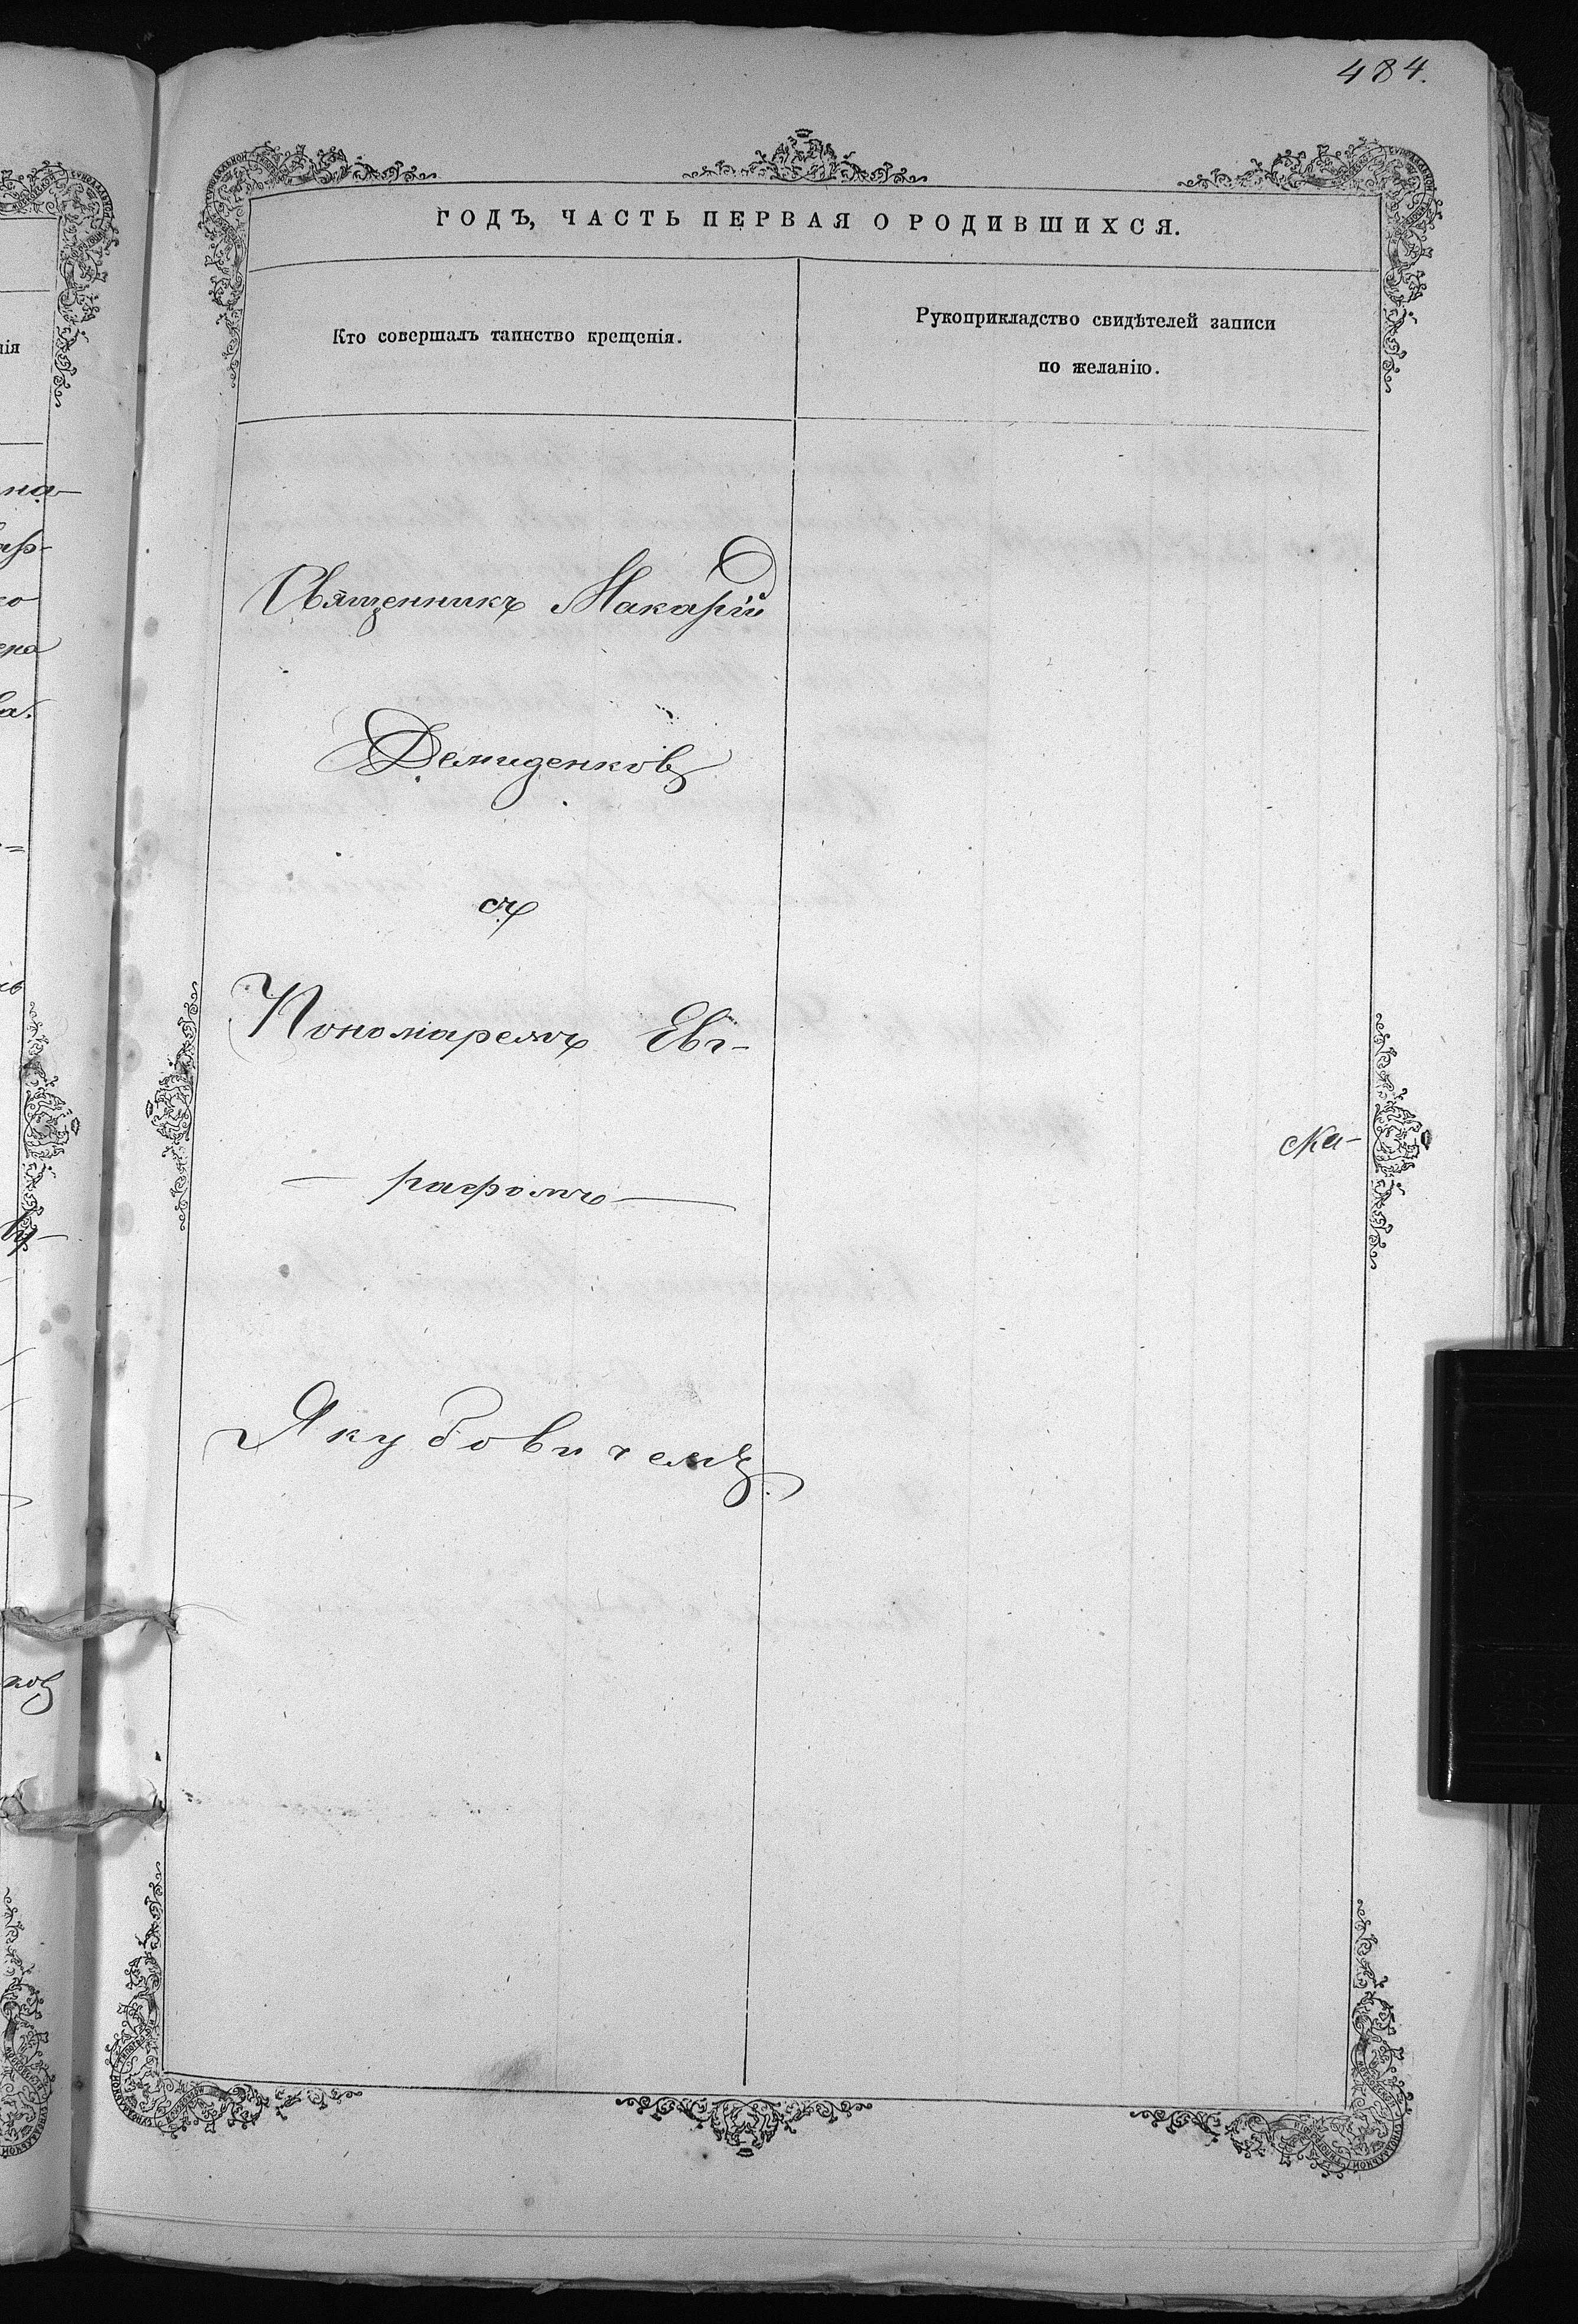 484.
ГОДЪ, ЧАСТЬ ПЕРВАЯ О РОДИВШИХСЯ.
Кто совершалъ таинство крещенія.
Рукоприкладство свидѣтелей записи
по желанію.
Священникъ Макарій
Демиденковъ
съ
Пономаремъ Ев-
— графомъ —
Якубовичемъ.